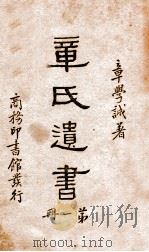 章學誠著
章氏遺書
第一冊
商務印書館發行
www.mumuci.com